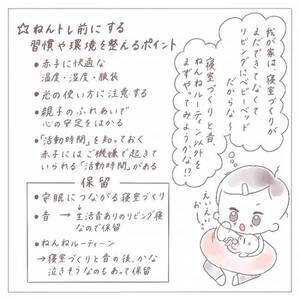 ☆ねんトレ前にする
習慣や環境を整えるポイント
・赤子に快適な
温度・湿度・服装
・光の使い方に注意する
・親子のふれあいで
心の安定をはかる
・「活動時間」を知っておく
赤子にはご機嫌で起きて
いられる「活動時間」がある
保留
・安眠につながる寝室づくり
・音 → 生活音ありのリビング寝
なので保留
・ねんねルーティーン
→寝室づくりと音の後、かな
泣きそうなのもあって保留
我が家は、寝室づくりが
まだできてなくて
リビングにベビーベッド
だからな〜
寝室づくりと音、
ねんねルーティーン以外を
まずやってみようかな!?
えいえい
おー!